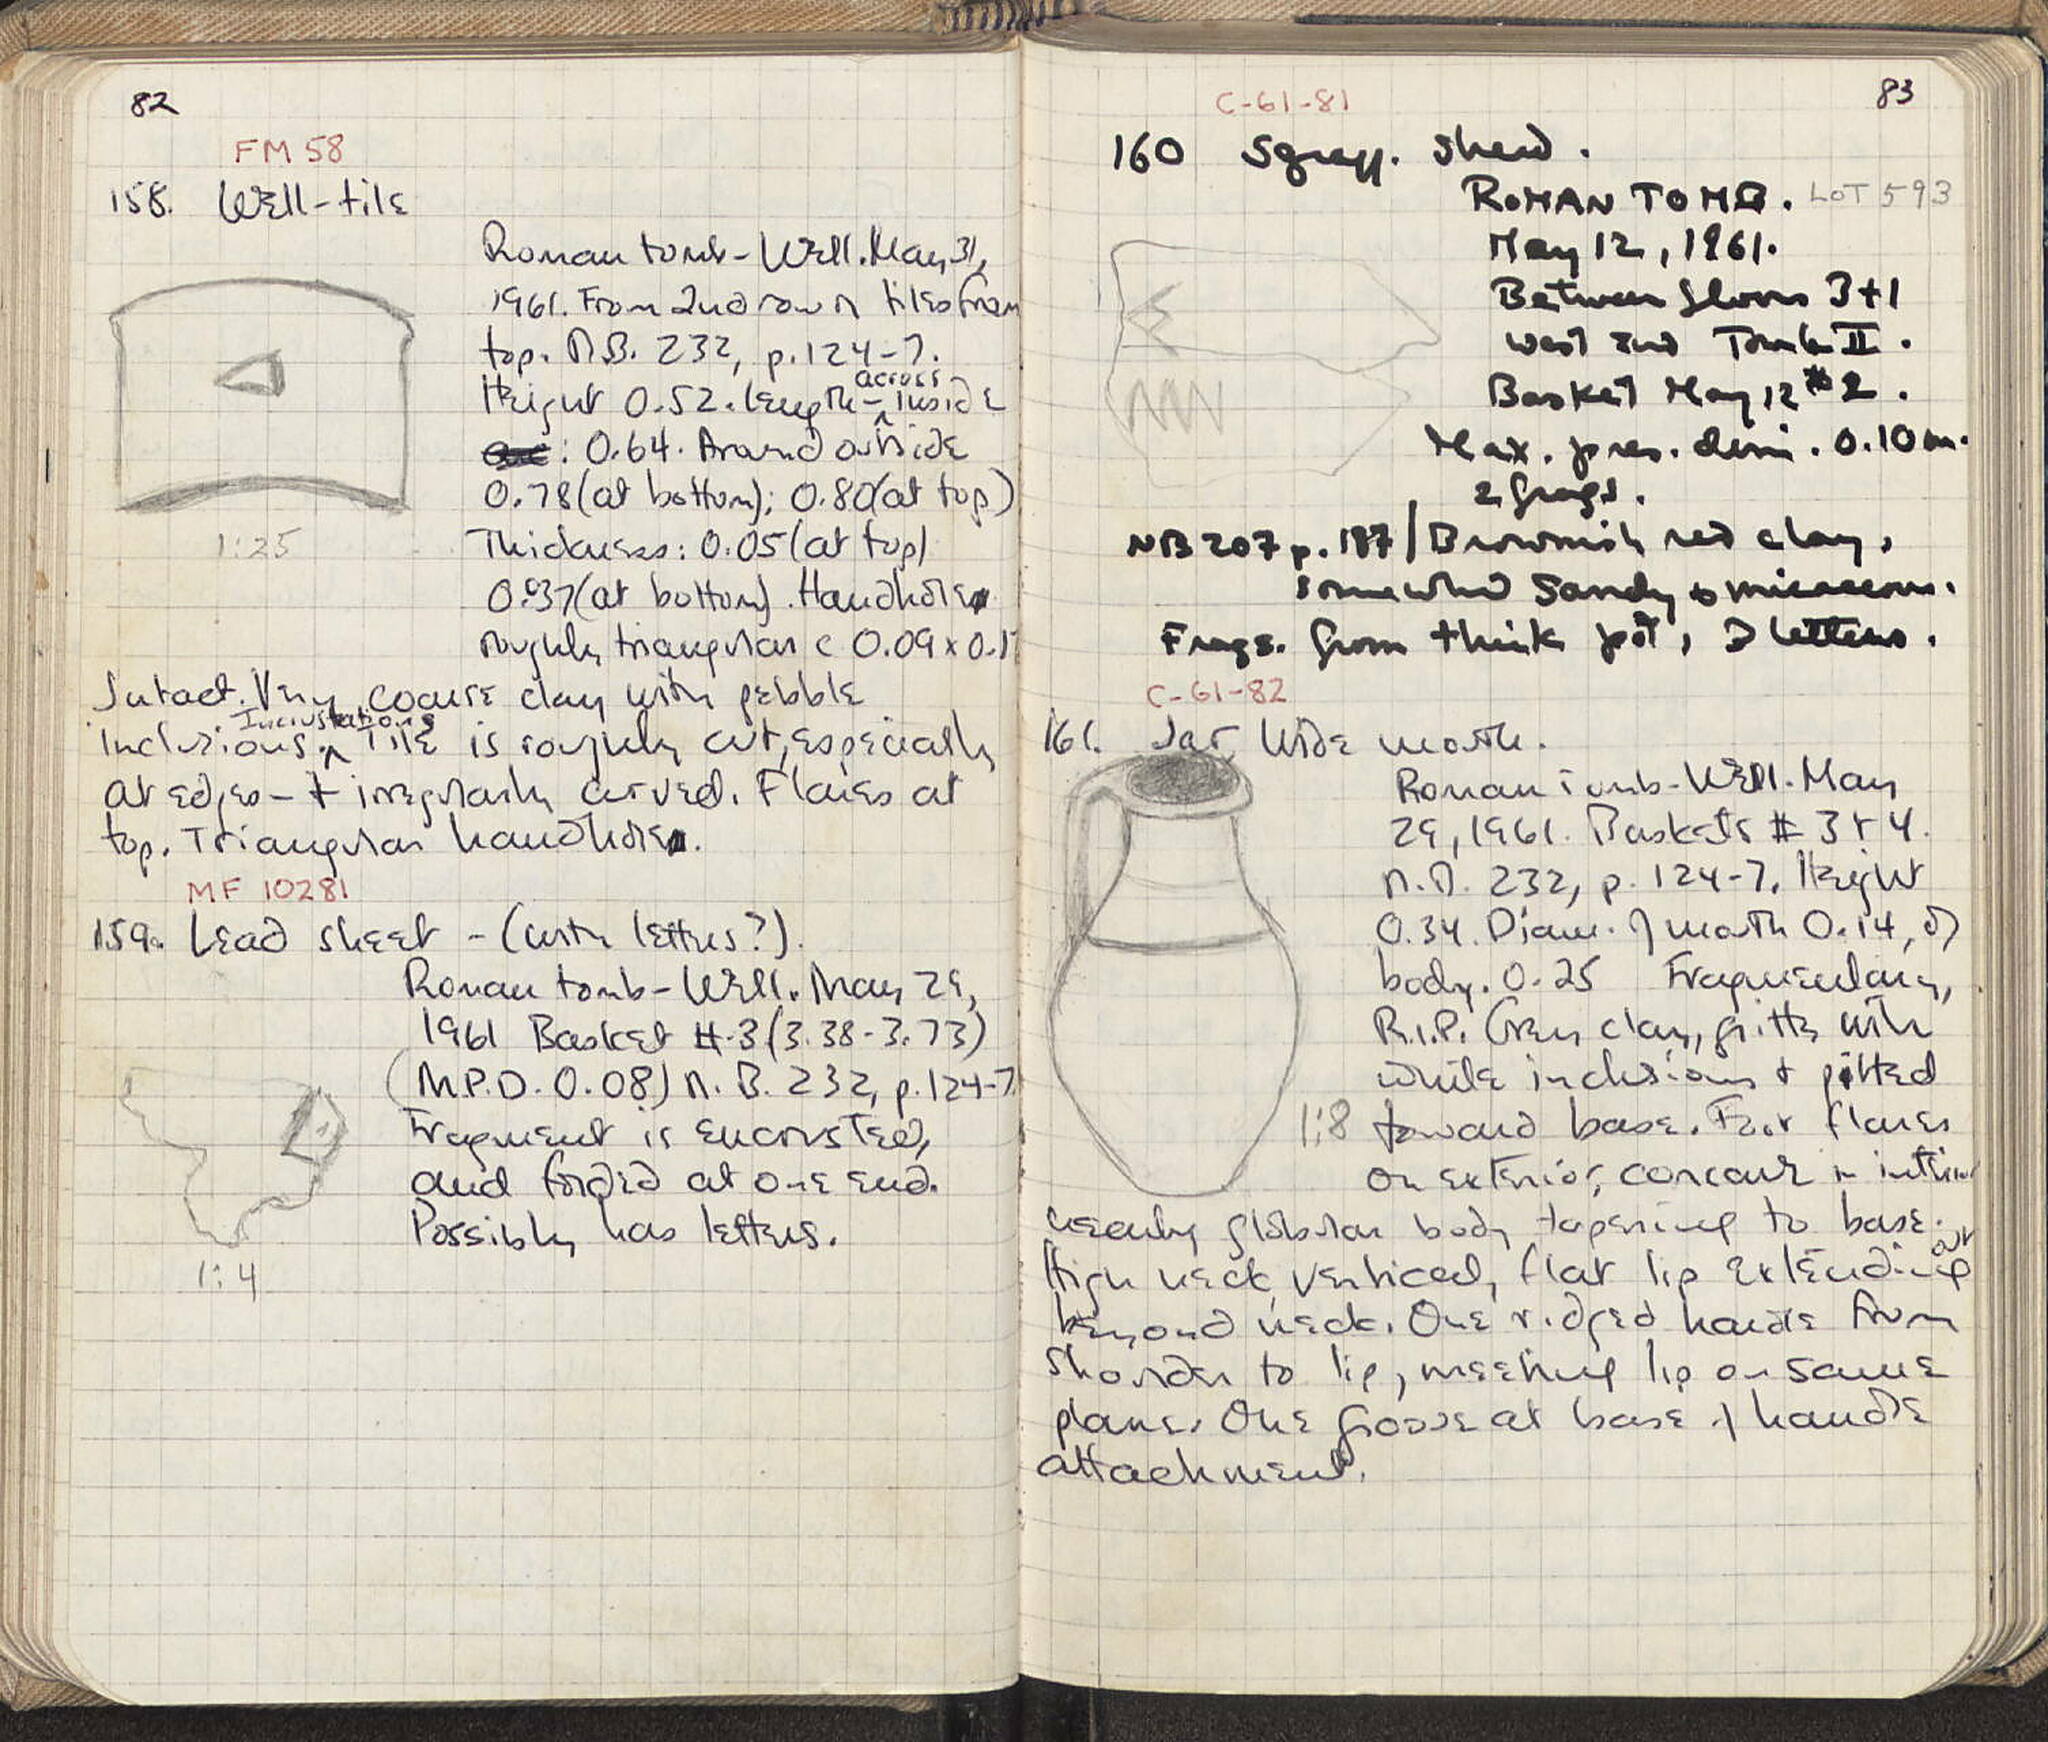 82
FM 58
158. Well-tile
Roman tomb-Well. May 31,
1961. From 2nd row of tiles from
top. N.B. 232, p. 124-7.
Height 0.52. Length- across inside
: 0.64. Around outside
0.78 (at bottom); 0.80 (at top)
Thickness: 0.05 (at top)
0.037 (at bottom). Handhole
roughly triangular c 0.09 x 0.1
1:25
Intact. Very coarse clay with pebble
inclusions. Incrustations Tile is roughly cut, especially
at edges - & irregularly curved. Flares at
top. Triangular handhole.
MF 10281
159. Lead sheet - (with letters?).
Roman tomb-Well. May 29,
1961 Basket #3 (3.38-3.73)
(M.P.D. 0.08) N.B. 232, p. 124-7.
Fragment is encrusted,
and folded at one end.
Possibly has letters.
1:4
83
C-61-81
160 Sgraff. Sherd.
ROMAN TOMB. LOT 593
May 12, 1961.
Between floors 3+1
west end Tomb II.
Basket May 12 #2.
Max. pres. dim. 0.10 m.
2 frags.
NB 207 p. 187 / Brownish red clay,
somewhat sandy & micaceous.
Frags. from thick pot, 2 letters.
C-61-82
161. Jar, Wide mouth.
Roman tomb-Well. May
29, 1961. Baskets #3 & 4.
N.B. 232, p. 124-7. Height
0.34. Diam. of mouth 0.14, of
body. 0.25 Fragmentary,
R.I.P. Grey clay, gritty with
white inclusions & pitted
1:8 toward base. Foot flares
on exterior, concave in interior
nearly globular body tapering to base.
High neck, vertical, flat lip extending out
beyond neck. One ridged handle from
shoulder to lip, meeting lip on same
plane. One groove at base of handle
attachment.